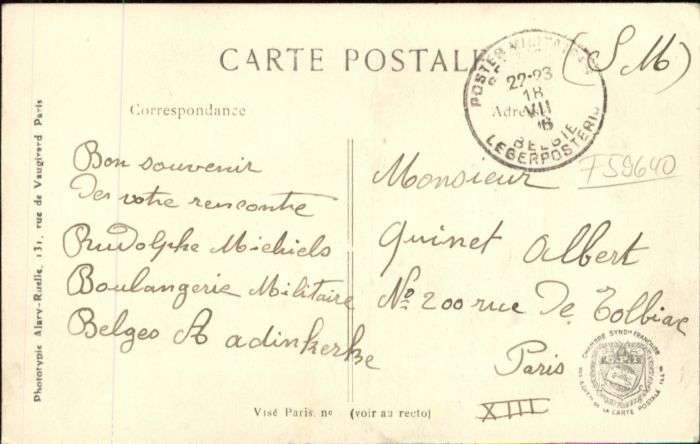 CARTE POSTALE
(S M)
POSTES MILITAIRES
22-23
18
VII
BELGIE
LEGERPOSTERIJ
Correspondance
Adresse
Bon souvenir
Des votre rencontre
Rudolphe Michiels
Boulangerie Militaire
Belges A adinkerke
Monsieur
Quinet Albert
No 200 rue De Tolbiac
Paris
XIII
F59640
Phototypie Alary-Ruelle, 131, rue de Vaugirard Paris
Visé Paris. no (voir au recto)
CHAMBRE SYNDle FRANÇAISE
DE LA CARTE POSTALE ILLée